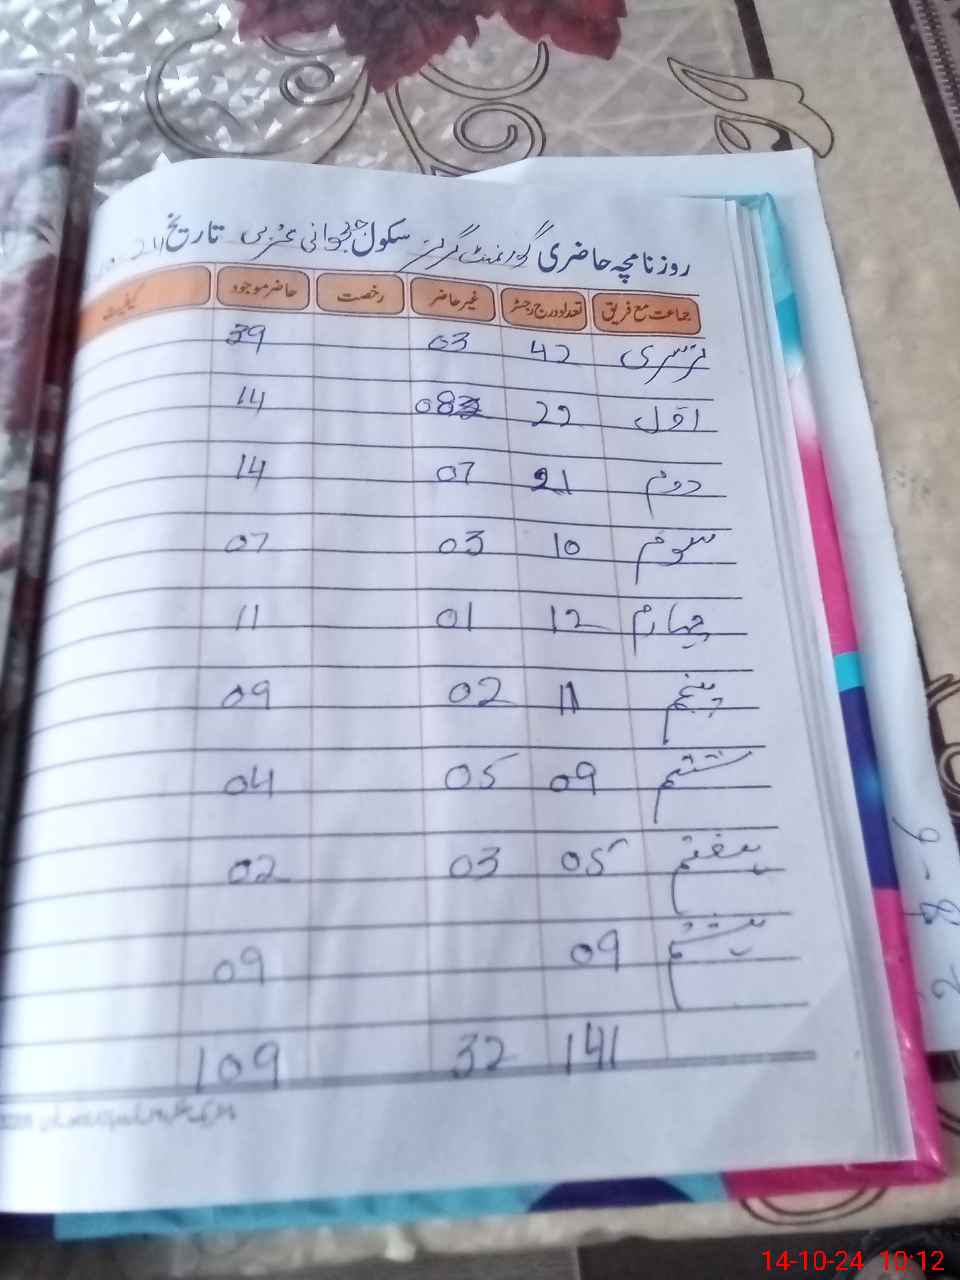 روزنامچہ حاضری گورنمنٹ گرلز سکول تاریخ
جماعت مع فریق تعداد درج رجسٹر غیر حاضر رخصت حاضر موجود کیفیت
نرسری 42 03 39
اول 22 08 14
دوم 21 07 14
سوم 10 03 07
چہارم 12 01 11
پنجم 11 02 09
ششم 09 05 04
ہفتم 05 03 02
ہشتم 09 09
141 32 109
14-10-24 10:12